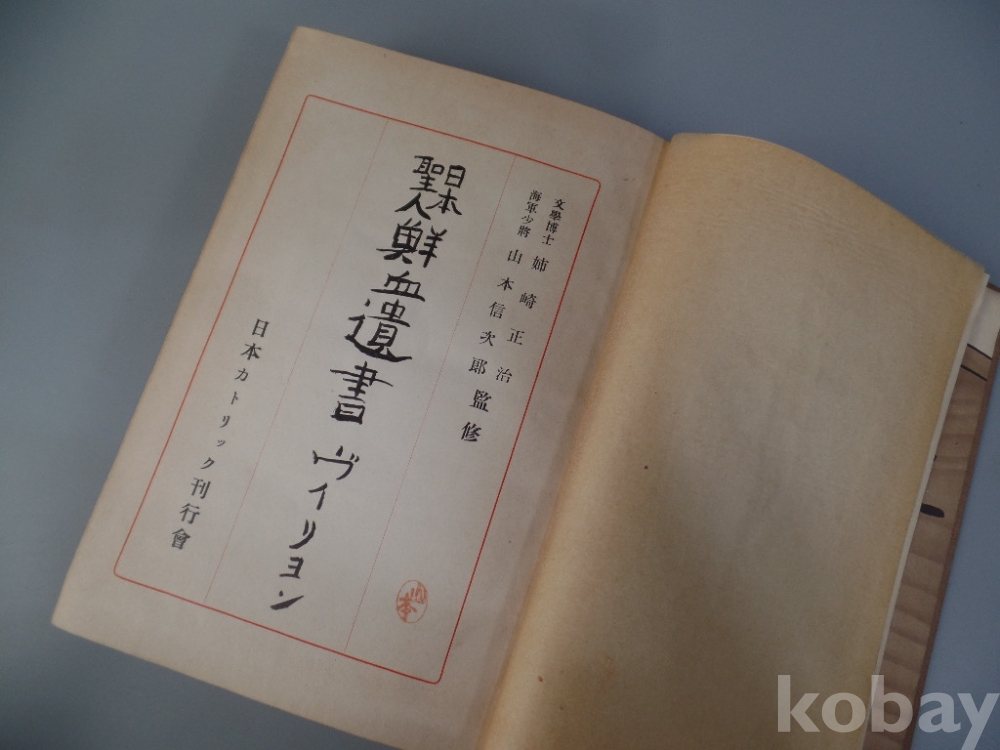 文學博士 姉崎正治
海軍少將 山本信次郎 監修
日本聖人鮮血遺書 ヴィリヨン
日本カトリック刊行會
kobay